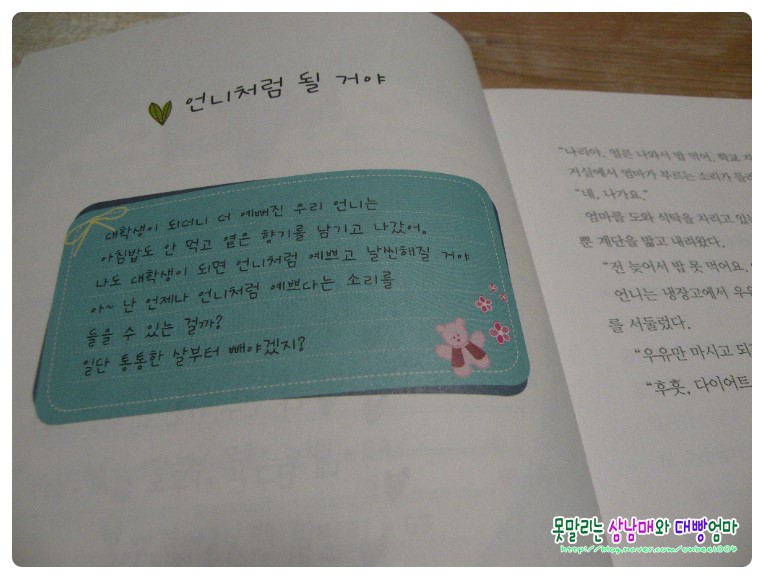 언니처럼 될 거야
대학생이 되더니 더 예뻐진 우리 언니는
아침밥도 안 먹고 옅은 향기를 남기고 나갔어.
나도 대학생이 되면 언니처럼 예쁘고 날씬해질 거야
아~ 난 언제나 언니처럼 예쁘다는 소리를
들을 수 있는 걸까?
일단 통통한 살부터 빼야겠지?
"나리야, 얼른 나와서 밥 먹어, 학교
거실에서 엄마가 부르는 소리가
"네, 나가요."
엄마를 도와 식탁을 차리고
뿐 계단을 밟고 내려왔다.
"전 늦어서 밥 못 먹어요.
언니는 냉장고에서
를 서둘렀다.
"우유만 마시고
"후훗, 다이어트
못말리는 삼남매와 대빵엄마
http://blog.naver.com/unbee1004